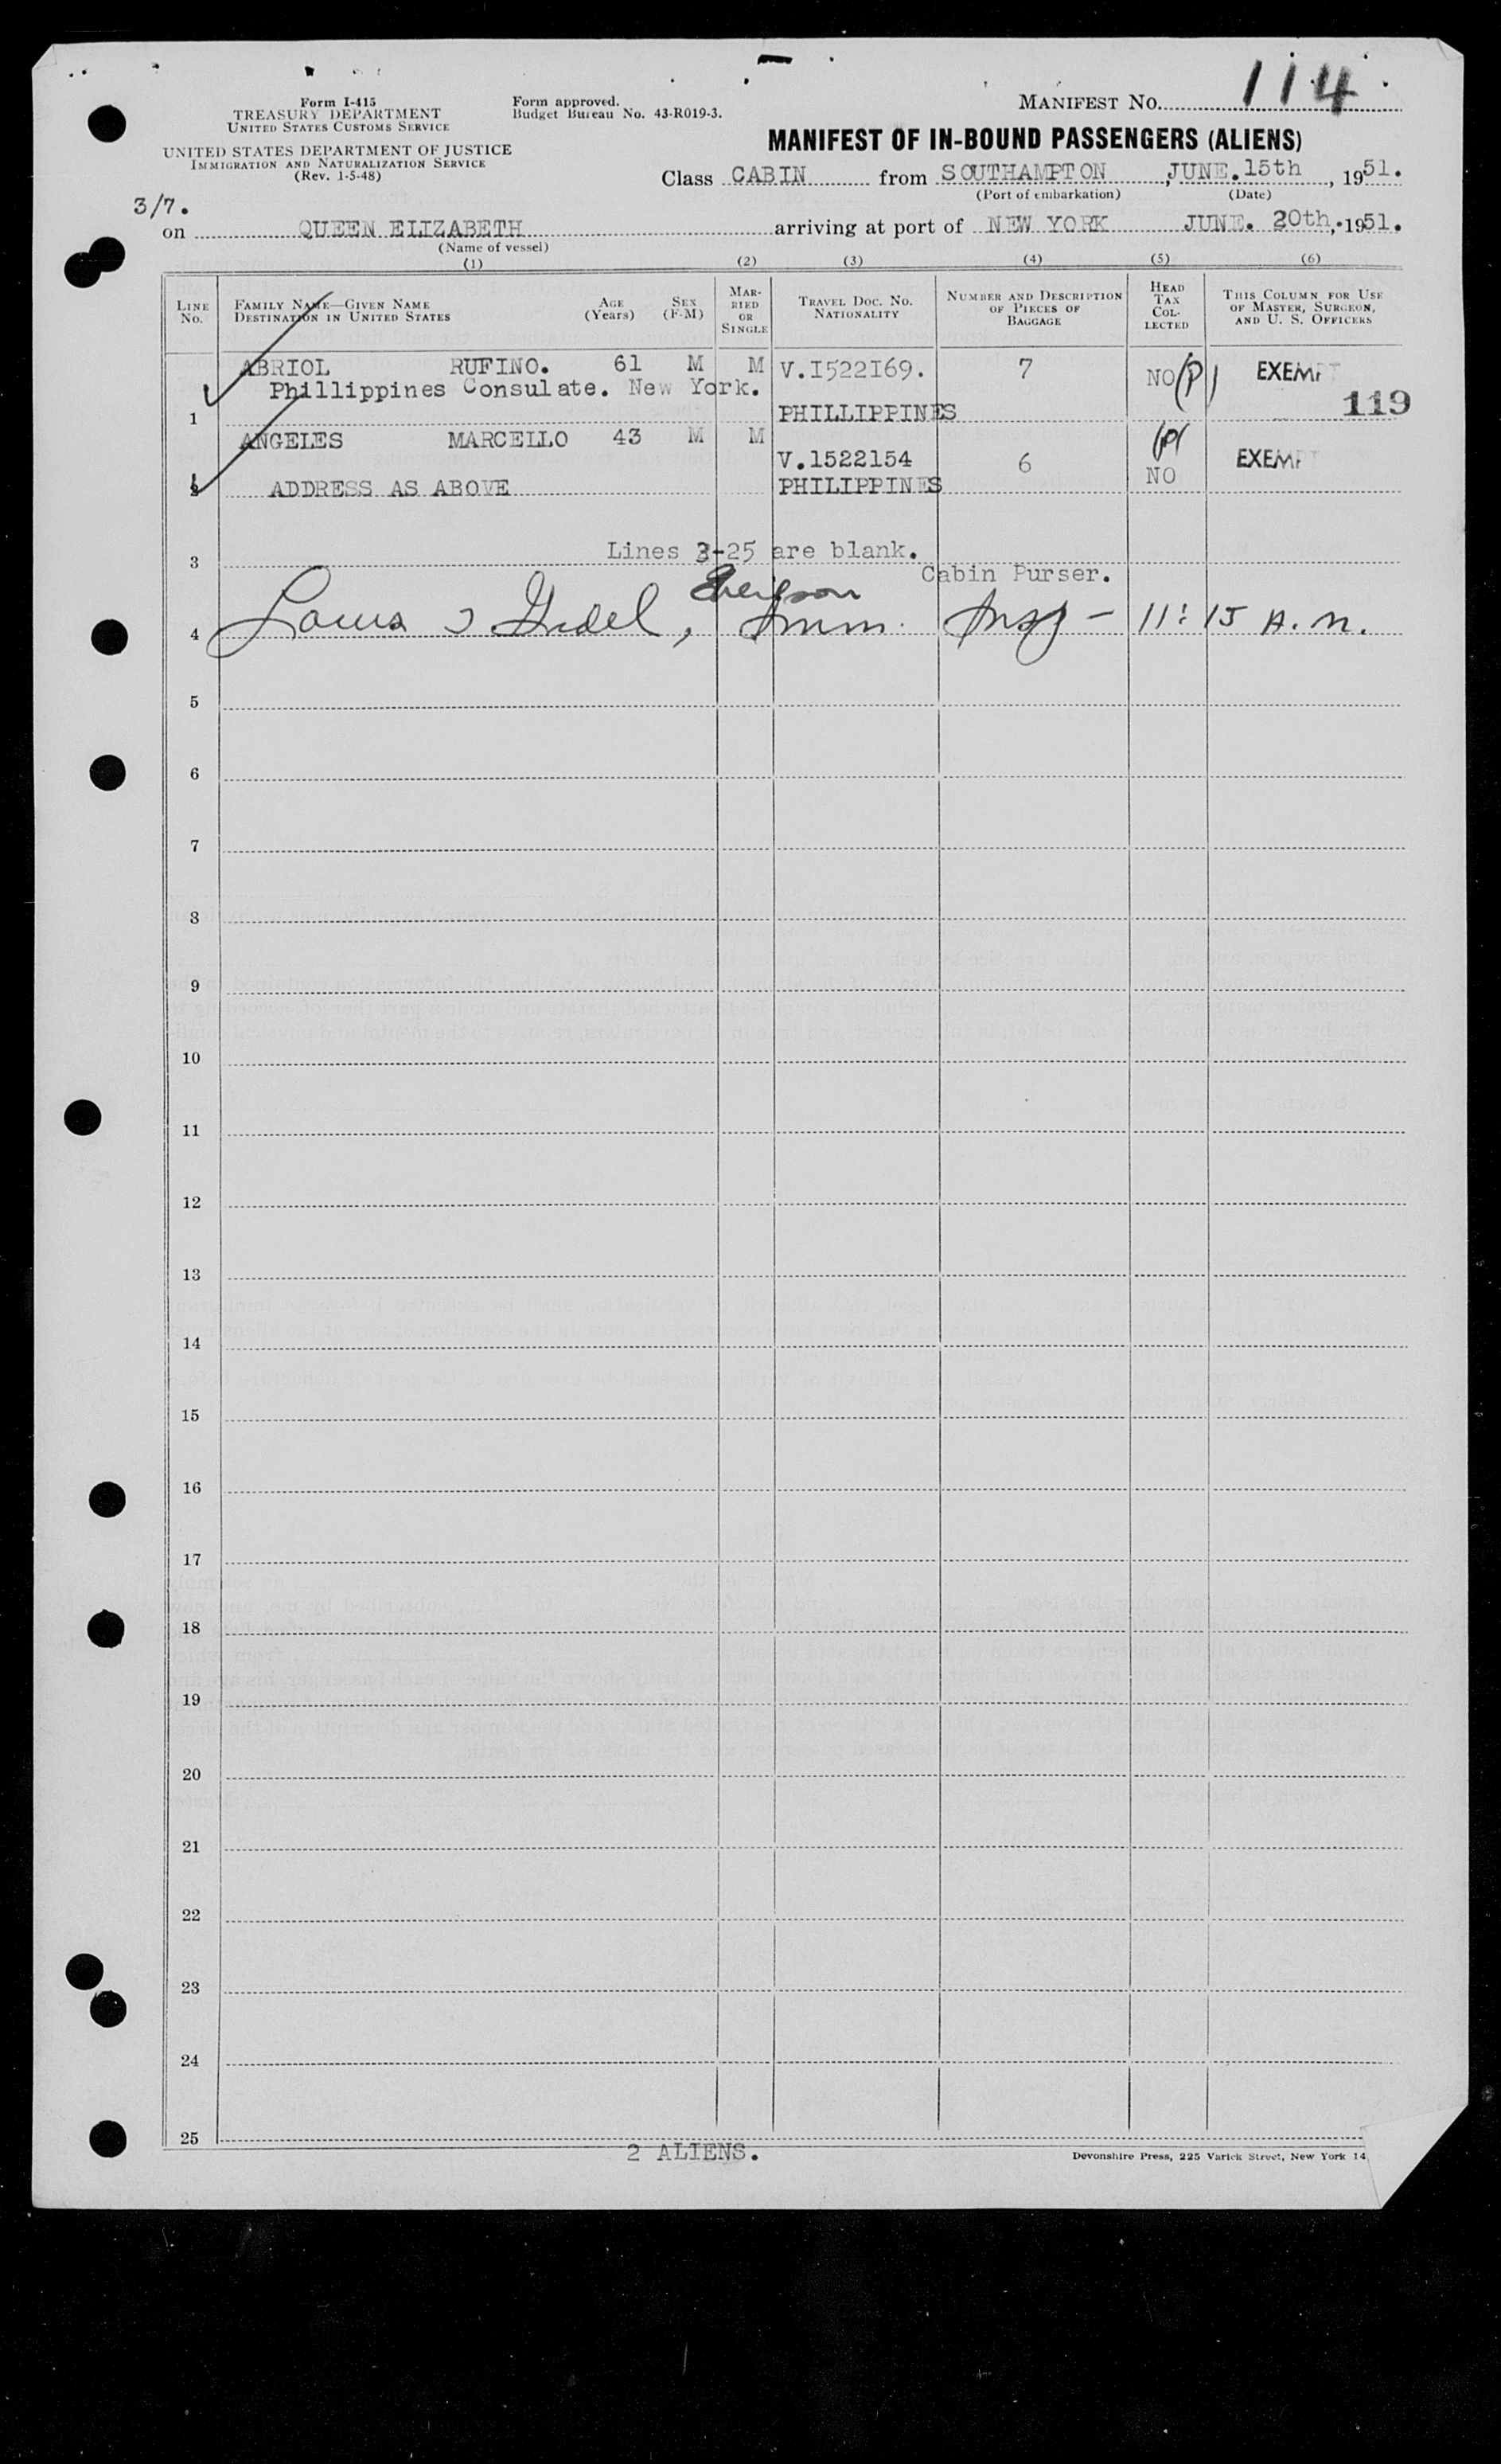 Form I-415
TREASURY DEPARTMENT
UNITED STATES CUSTOMS SERVICE
UNITED STATES DEPARTMENT OF JUSTICE
IMMIGRATION AND NATURALIZATION SERVICE
(Rev. 1-5-48)
Form approved.
Budget Bureau No. 43-R019-3.
MANIFEST NO. 114
MANIFEST OF IN-BOUND PASSENGERS (ALIENS)
Class CABIN from SOUTHAMPTON, JUNE.15th, 1951.
(Port of embarkation) (Date)
3/7.
on QUEEN ELIZABETH arriving at port of NEW YORK JUNE. 20th, 1951.
(Name of vessel)
(1) (2) (3) (4) (5) (6)
LINE NO. FAMILY NAME—GIVEN NAME DESTINATION IN UNITED STATES AGE (Years) SEX (F-M) MARRIED OR SINGLE TRAVEL DOC. NO. NATIONALITY NUMBER AND DESCRIPTION OF PIECES OF BAGGAGE HEAD TAX COLLECTED THIS COLUMN FOR USE OF MASTER, SURGEON, AND U. S. OFFICERS
ABRIOL RUFINO. 61 M M V.I522I69. 7 NO (P) EXEMPT
Phillippines Consulate. New York.
1 PHILLIPPINES 119
ANGELES MARCELLO 43 M M
V.1522154 6 NO EXEMPT
2 ADDRESS AS ABOVE PHILIPPINES
Lines 3-25 are blank.
3
Cabin Purser.
4 Imm. Insp - 11:15 A.M.
5
6
7
8
9
10
11
12
13
14
15
16
17
18
19
20
21
22
23
24
25
2 ALIENS.
Devonshire Press, 225 Varick Street, New York 14